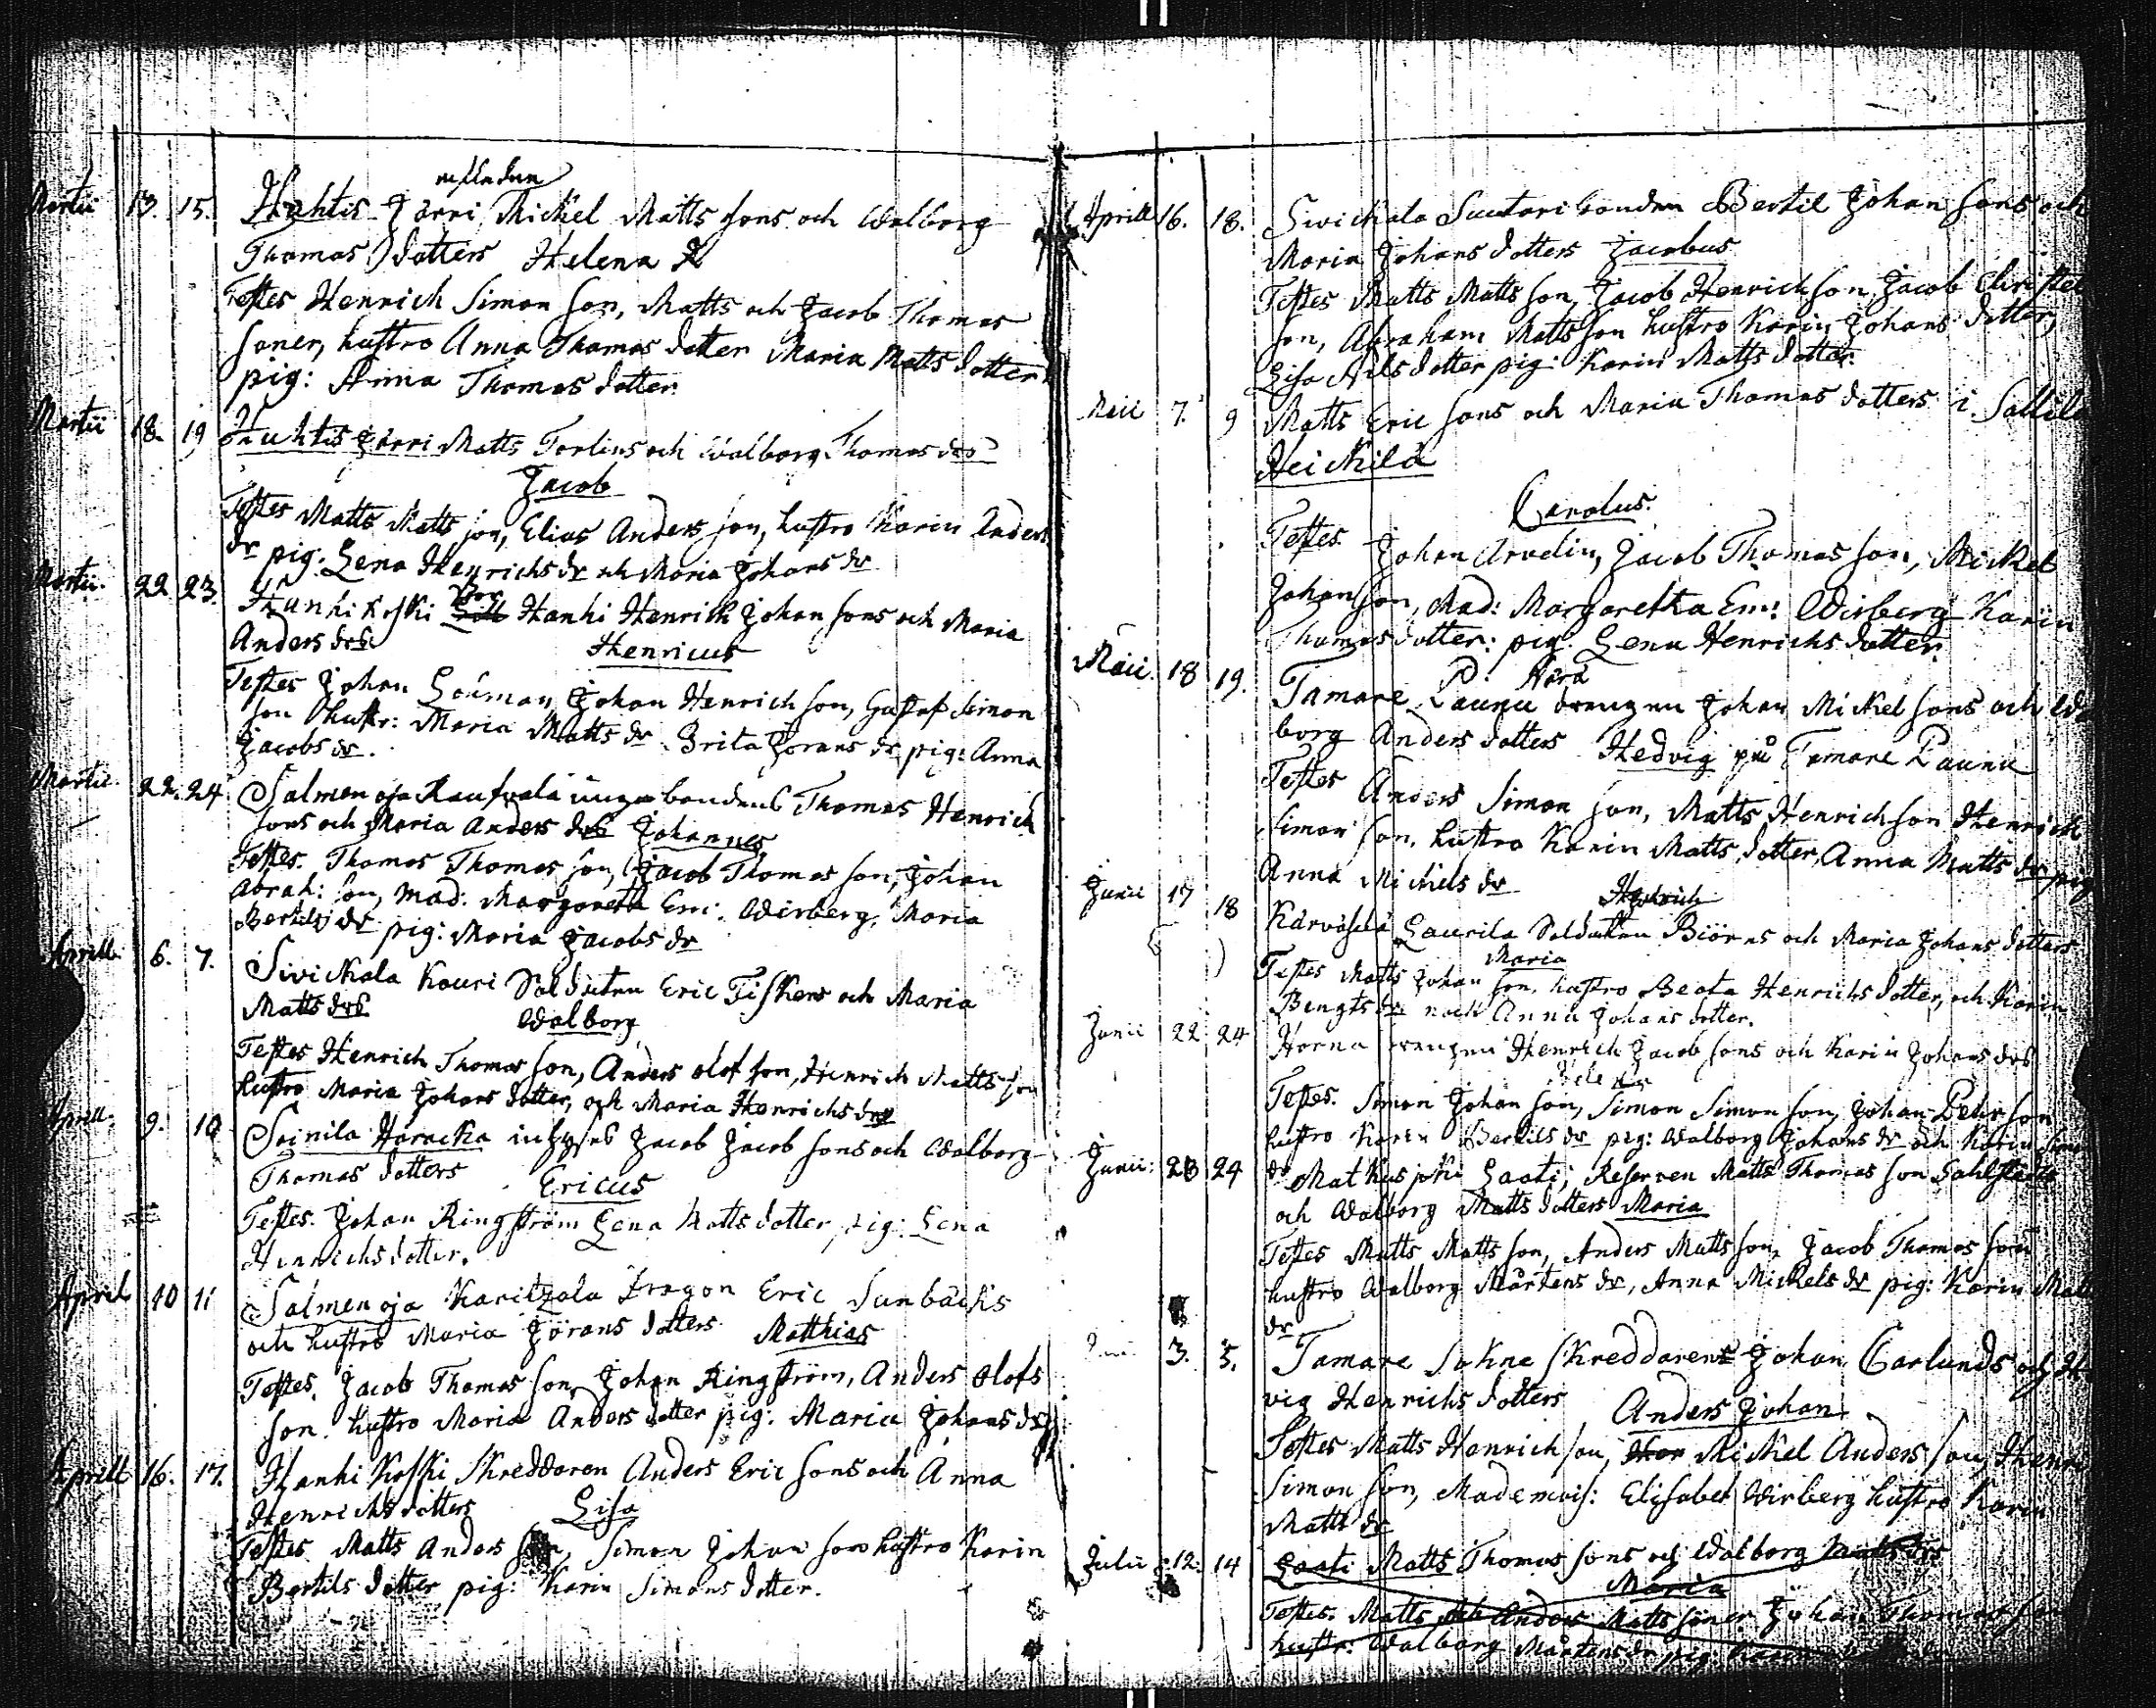 Martii 13. 15. Huhtis Jårri, Mickel Matts sons och Walborg
Thomas dotters Helena
Testes Henrich Simon son, Matts och Jacob Thomas
söner, hustro Anna Thomas dotter Maria Matts dotter
pig: Anna Thomas dotter
Martii 18. 19 Huhtis Jårri Matts Torlins och Walborg Thomas drs
Jacob
Testes Matts Matts son, Elias Anders son, hustro Karin Anders
dr pig: Lena Henrichs dr och Maria Johans dr
Martii 22 23. Hanhi Koski Hanhi Henrich Johan sons och Maria
Anders drs Henricus
Testes Johan Johan Henrich son, Gustaf Simon
son hustr: Maria Matts dr Brita Jörans dr pig: Anna
Jacobs dr.
Martii 22. 24 Salmenoja Raukvala unga bondens Thomas Henrich
sons och Maria Anders drs Johannes
Testes. Thomas Thomas son, Jacob Thomas son, Johan
Abrah: son, Mad: Margareta Em: Wirberg, Maria
Bertils dr pig: Maria Jacobs dr
Aprill 6. 7. Sivickala Kouri Soldaten Eric Fiskers och Maria
Matts drs Walborg
Testes Henrich Thomas son, Anders Olof son, Henrich Matts son
hustro Maria Johans dotter, och Maria Henrichs dr
Aprill. 9. 10 Soinila Haracka inhyses Jacob Jacob sons och Walborg
Thomas dotters Ericus
Testes. Johan Ringström Lena Matts dotter, pig: Lena
Henrichs dotter.
April 10 11 Salmenoja Karitzala Dragon Eric Sunbäcks
och hustro Maria Jörans dotters Matthias
Testes. Jacob Thomas son, Johan Ringström, Anders Olofs
son. hustro Maria Anders dotter pig: Maria Johans dr
Aprill 16. 17. Hanhi Koski Skreddaren Anders Eric sons och Anna
Henrichs dotters Lisa
Testes Matts Anders son, Simon Johan son hustro Karin
Bertils dotter pig: Karin Simons dotter.
Aprill 16. 18. Swickala Suutari bonden Bertil Johan sons och
Maria Johans dotters Jacobus
Testes Matts Matts son, Jacob Henrich son, Jacob Christer
son, Abraham Matts son hustro Karin Johans dotter,
Lisa Nils dotter pig: Karin Matts dotter.
Maii 7. 9 Matts Eric sons och Maria Thomas dotters i Sallila
Heickilä
Carolus.
Testes Johan Arvelin, Jacob Thomas son, Mickel
Johan son, Mad: Margaretha Em: Wirberg Karin
Thomas dotter: pig: Lena Henrichs dotter.
Maii 18 19. Tamare Paunu drengen Johan Mickel sons och Wal
borg Anders dotters Hedvig på Tamare Paunu
Testes Anders Simon son, Matts Henrich son Henrich
Simon son, hustro Karin Matts dotter, Anna Matts dr pig
Anna Mickels dr
Junii 17 18 Karvasela Laurila Soldaten Henrich Biörns och Maria Johans dotters
Maria
Testes Matts Johan son, hustro Beata Henrichs dotter, och Karin
Bengts dr och Anna Johans dotter.
Junii 22 24 Horna drengen Henrich Jacob sons och Karin Johans drs
Helena
Testes. Simon Johan son, Simon Simon son, Johan Pehr son
hustro Karin Bertils dr pig: Walborg Johans dr och Karin Sim
Junii: 23 24 dr Matkusjoki Laati, Reserven Matts Thomas son Sahlstens
och Walborg Matts dotters Maria
Testes Matts Matts son, Anders Matts son, Jacob Thomas son
hustro Walborg Mårtens dr, Anna Mickels dr pig: Karin Matts
dr
3. 5. Tamare Sukne Skreddarens Johan Carlunds och Hed
vig Henrichs dotters Anders Johan
Testes Matts Henrich son, Mickel Anders son, Henr
Simon son, Mademois: Elisabet Wirberg hustro Karin
Matts dr
Julii 12. 14 Laati Matts Thomas sons och Walborg Matts drs
Maria
Testes. Matts och Anders Matts söner Johan Thomas son
hustr: Walborg Mårtens dr pig: